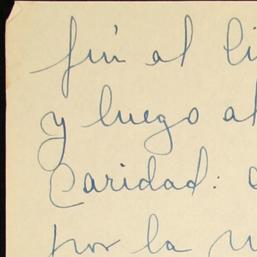 fui al li
y luego al
Caridad:
por la